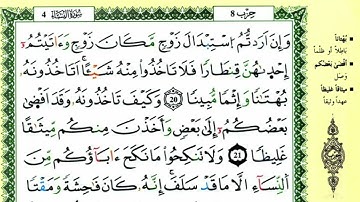 حزب 8
سورة النساء 4
وَإِنَ اَرَدتُّمُ اسْتِبْدَالَ زَوْجٍ مَّكَانَ زَوْجٍ وَءَاتَيْتُمُ
إِحْدَيٰهُنَّ قِنطَارًا فَلَا تَاخُذُواْ مِنْهُ شَيْـًٔا اَتَاخُذُونَهُۥ
بُهْتَٰنًا وَإِثْمًا مُّبِينًا 20 وَكَيْفَ تَاخُذُونَهُۥ وَقَدَ اَفْض۪يٰ
بَعْضُكُمُۥٓ إِلَيٰ بَعْضٍ وَأَخَذْنَ مِنكُم مِّيثَٰقًا
غَلِيظًا 21 وَلَا تَنكِحُواْ مَا نَكَحَ ءَابَآؤُكُم مِّنَ
اَلنِّسَآءِ اِلَّا مَا قَدْ سَلَفَ إِنَّهُۥ كَانَ فَٰحِشَةً وَمَقْتًا
بُهْتَانًا
باطلاً أو ظلماً
أفضى بعضكم
وصل
ميثاقاً غليظاً
عهداً وثيقاً